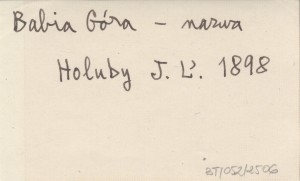 Babia Góra – nazwa
Holuby J. Ľ. 1898
BT/052/2506